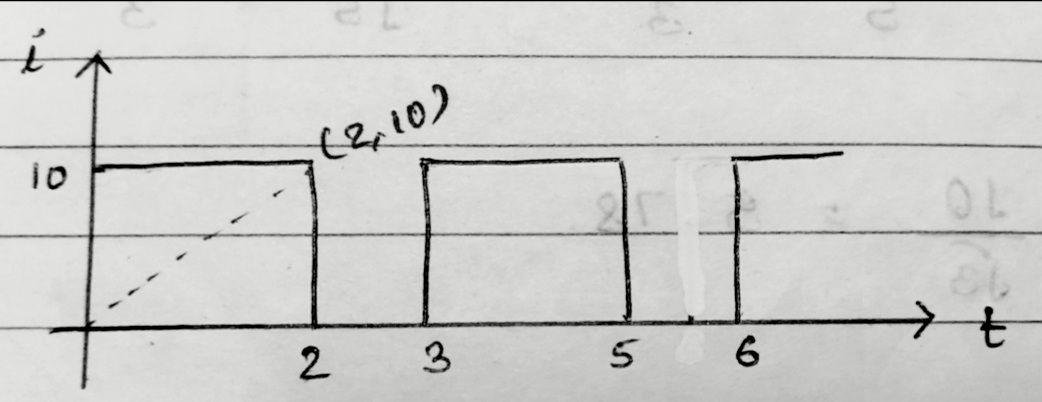 i
(2,10)
10
2 3 5 6 t